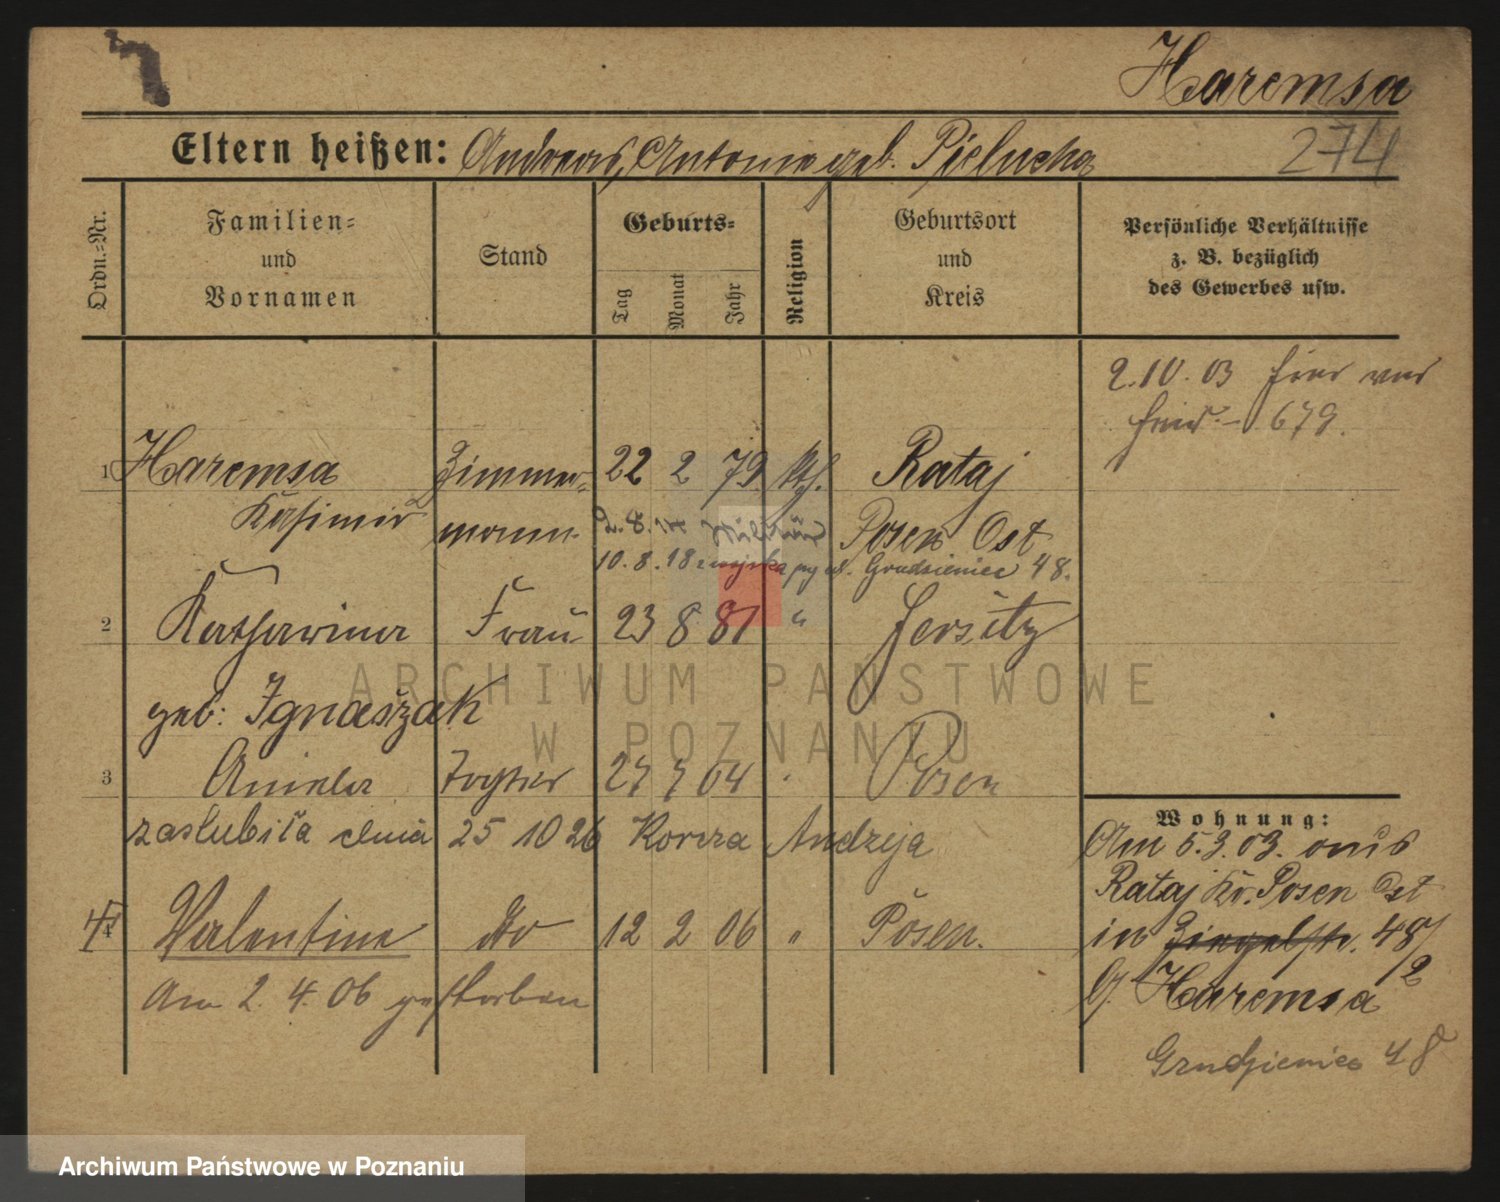 Haremsa
274
Eltern heißen: Andreas, Antonie geb. Pielucha
Ordn.-Nr.
Familien-
und
Vornamen
Stand
Geburts-
Tag
Monat
Jahr
Religion
Geburtsort
und
Kreis
Persönliche Verhältnisse
z. B. bezüglich
des Gewerbes usw.
2.IV.03
679.
1 Haremsa Zimmer- 22 2 79 Kth. Rataj
Kasimir mann 2.8.14 Militär Posen Ost
10.8.18 z wojska Grudzieniec 48.
2 Katharina Frau 23 8 81 " Jersitz
geb: Ignaszak
3 Aniela Tochter 27 7 04 " Posen
zaslubiła dnia 25 10 26 Andzeja
4 Valentine dto 12 2 06 " Posen.
Am 2.4.06 gestorben
Wohnung:
Am 5.3.03. aus
Rataj Kr. Posen Ost
in Ziegelstr. 48/2
G. Haremsa
Grudzieniec 48
ARCHIWUM PAŃSTWOWE
W POZNANIU
Archiwum Państwowe w Poznaniu